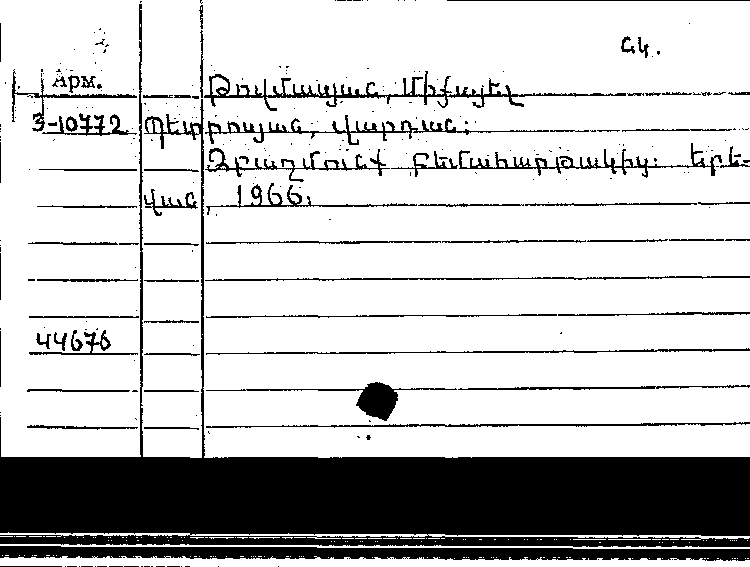 նկ.
Арм. Թովմասյան, Միքայել
3-10772 Պետրոսյան, Վարդան:
Զբաղմունք բեմահարթակից: Երե-
վան, 1966.
44676